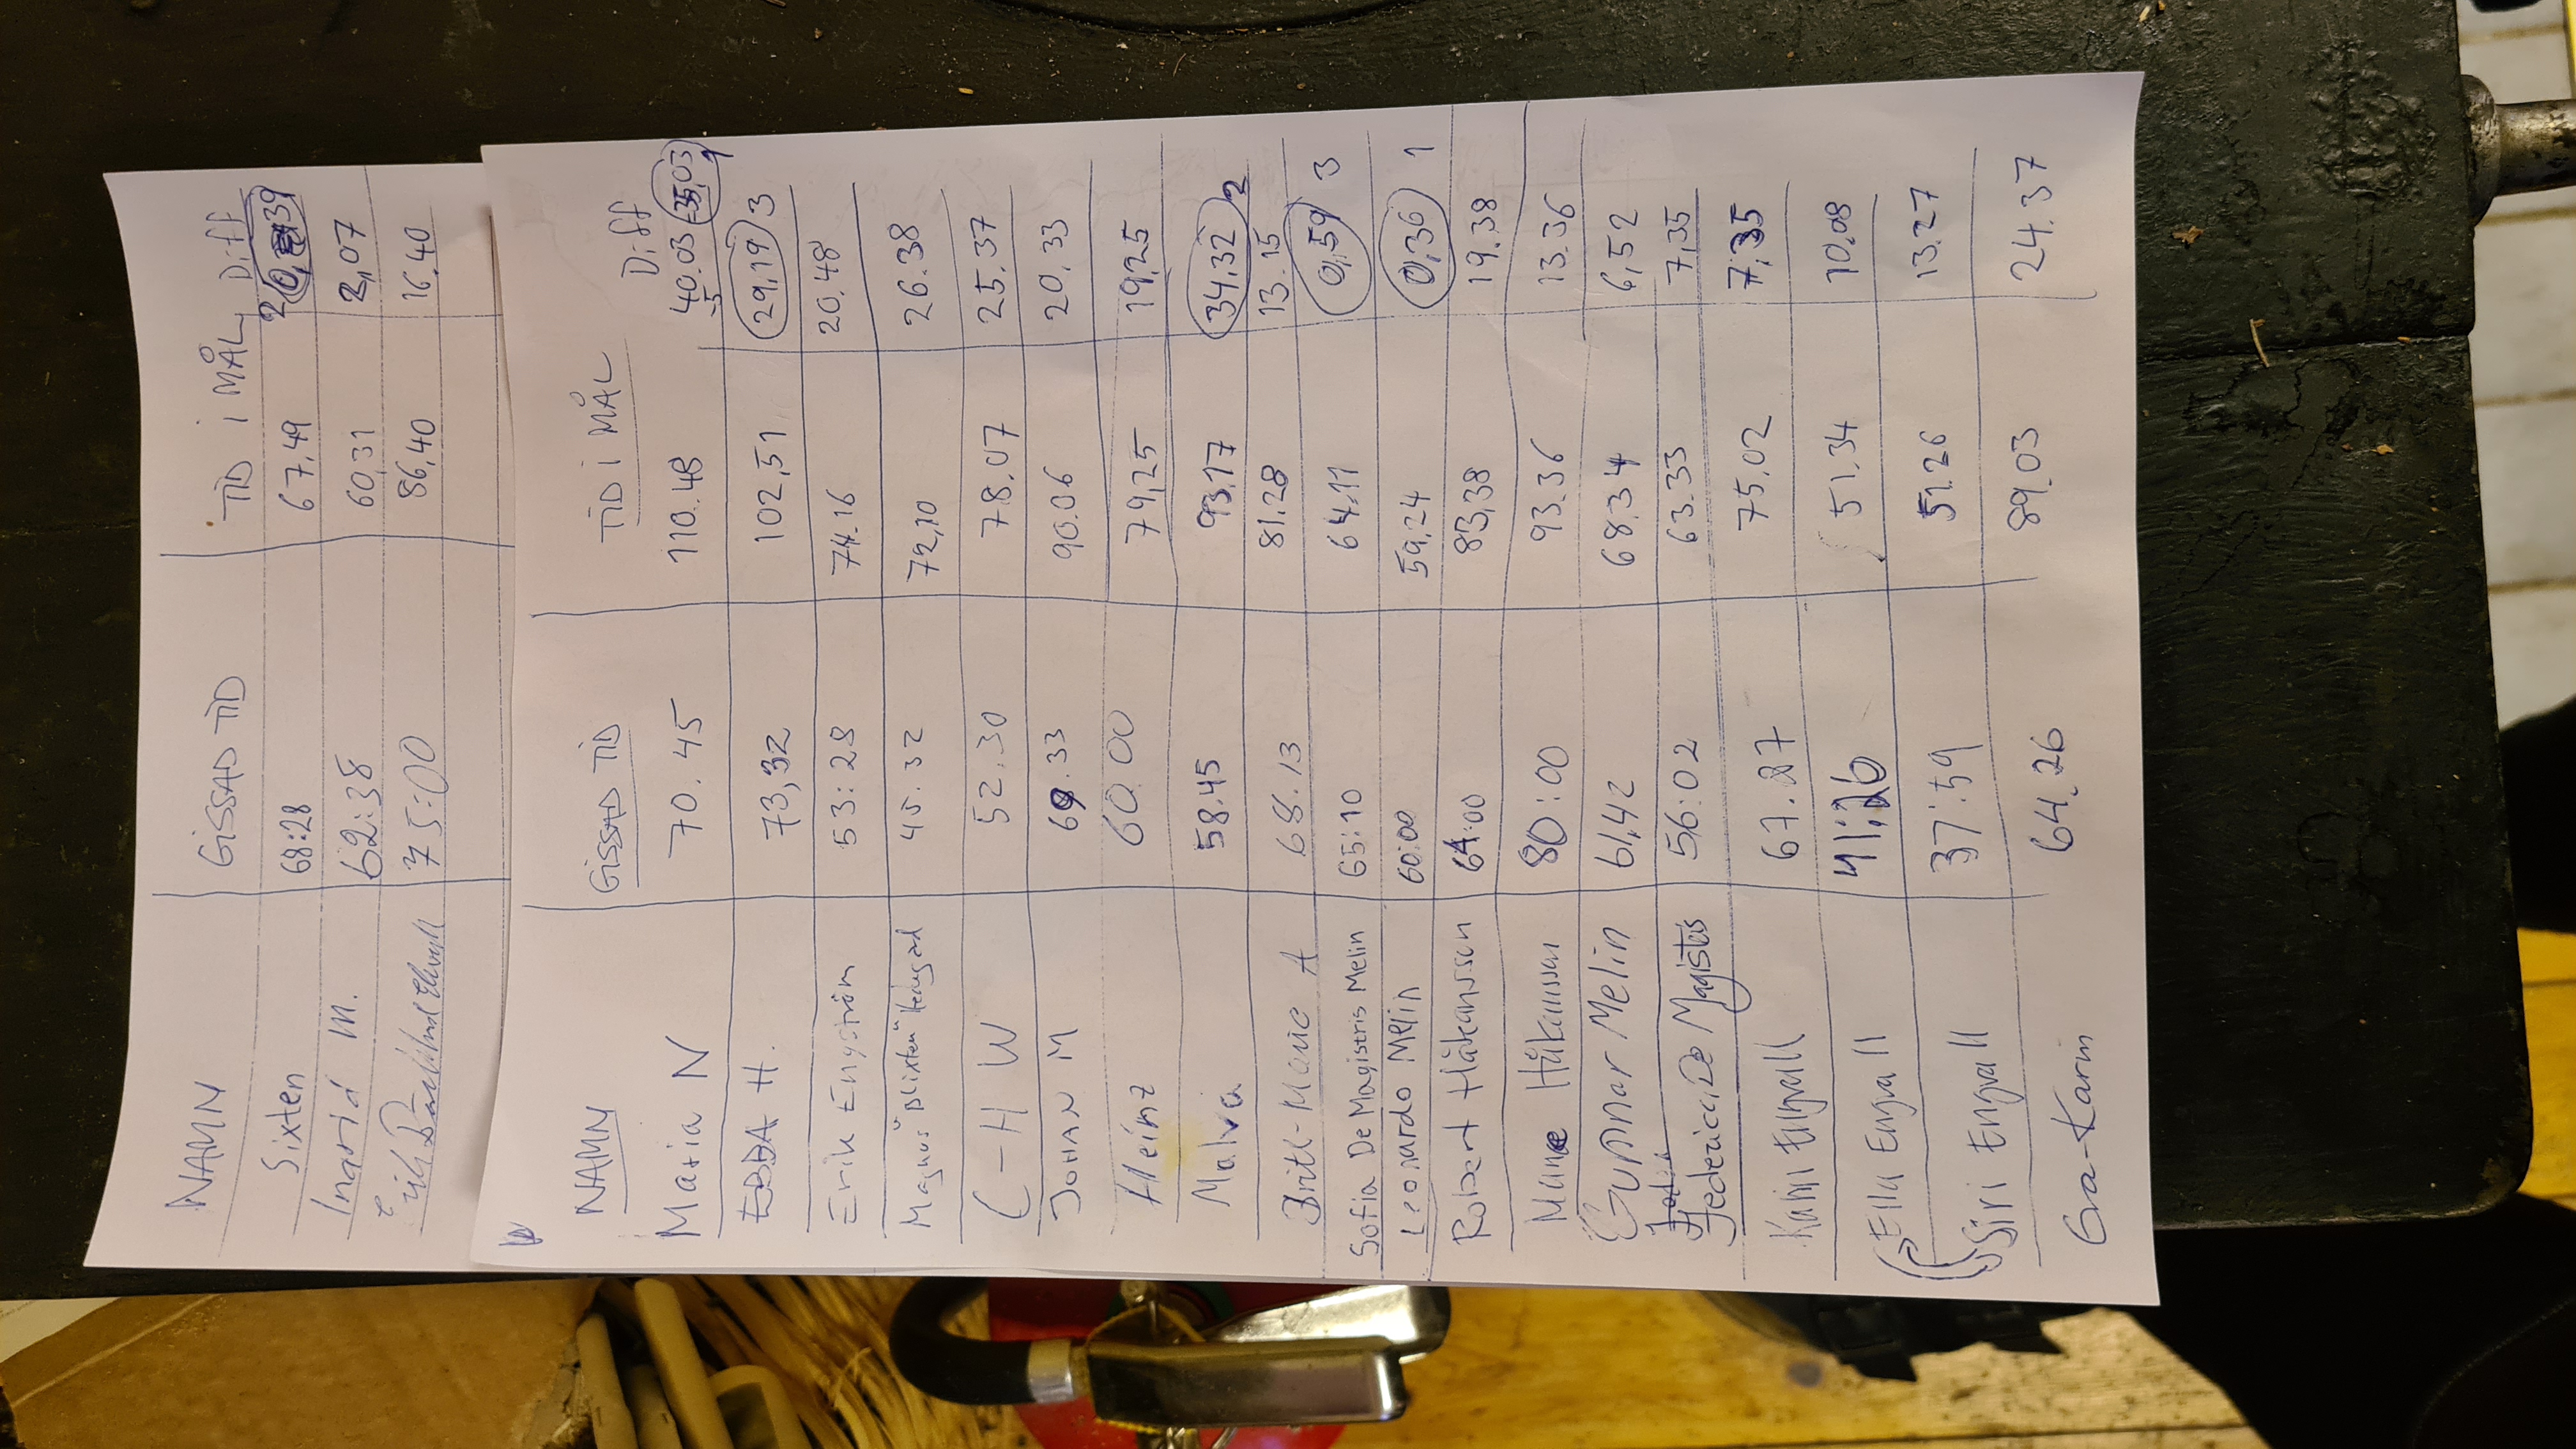 NAMN GISSAD TID TID I MÅL Diff
Sixten 68:28 67,49 2 0,39
Ingrid M. 62:38 60,31 2,07
75:00 86,40 16,40
NAMN GISSAD TID TID I MÅL Diff
Maria N 70.45 110.48 40.03 -5 35,03 1
EBBA H. 73,32 102,51 29,19 3
Erik Engström 53:28 74.16 20.48
Magnus "Blixten" 45.32 72,10 26.38
C-H W 52.30 78.07 25.37
JOHAN M 69.33 90.06 20,33
Heinz 60.00 79,25 19,25
Malva 58.45 93,17 34,32 2
Britt-Marie A 68.13 81.28 13.15
Sofia De Magistris Melin 65:10 64:11 0,59 3
Leonardo Melin 60:00 59,24 0,36 1
Robert Håkansson 64:00 83,38 19.38
Håkansson 80:00 93.36 13.36
Gunnar Melin 61,42 68.34 6,52
Federica De Magistris 56:02 63.33 7,35
Karin Engvall 67.27 75.02 7,35
Ella Engvall 41:26 51.34 10,08
Siri Engvall 37:59 51.26 13.27
Eva-Karin 64.26 89.03 24.37